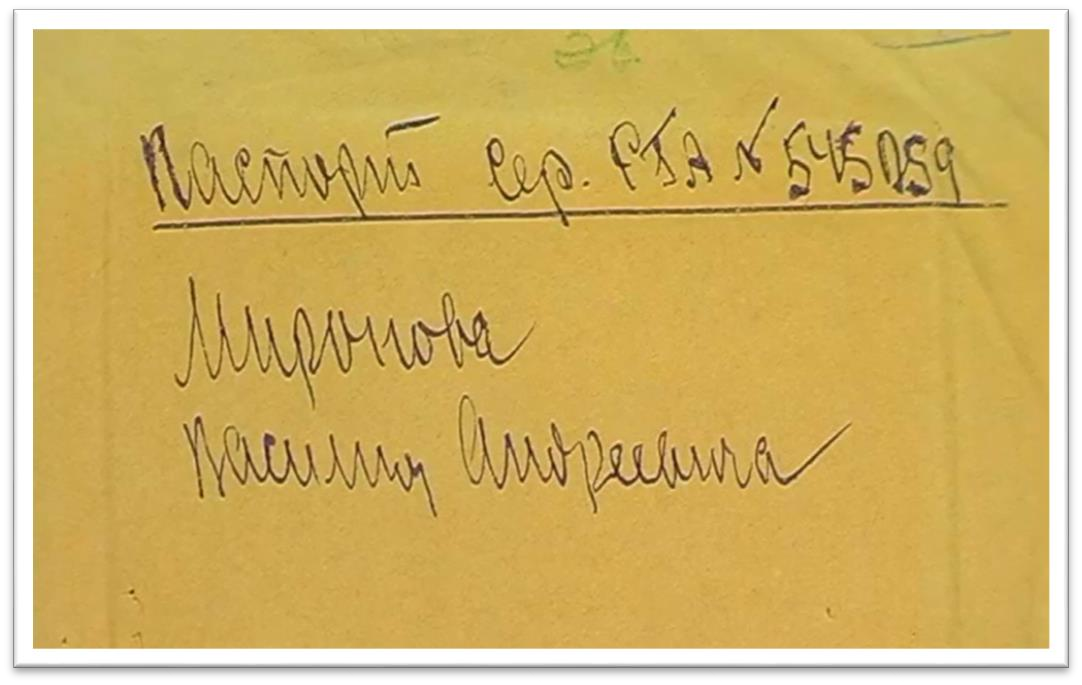 Эк.
Паспорт Сер. СБА № 545059
Миронова
Василия Андреевича